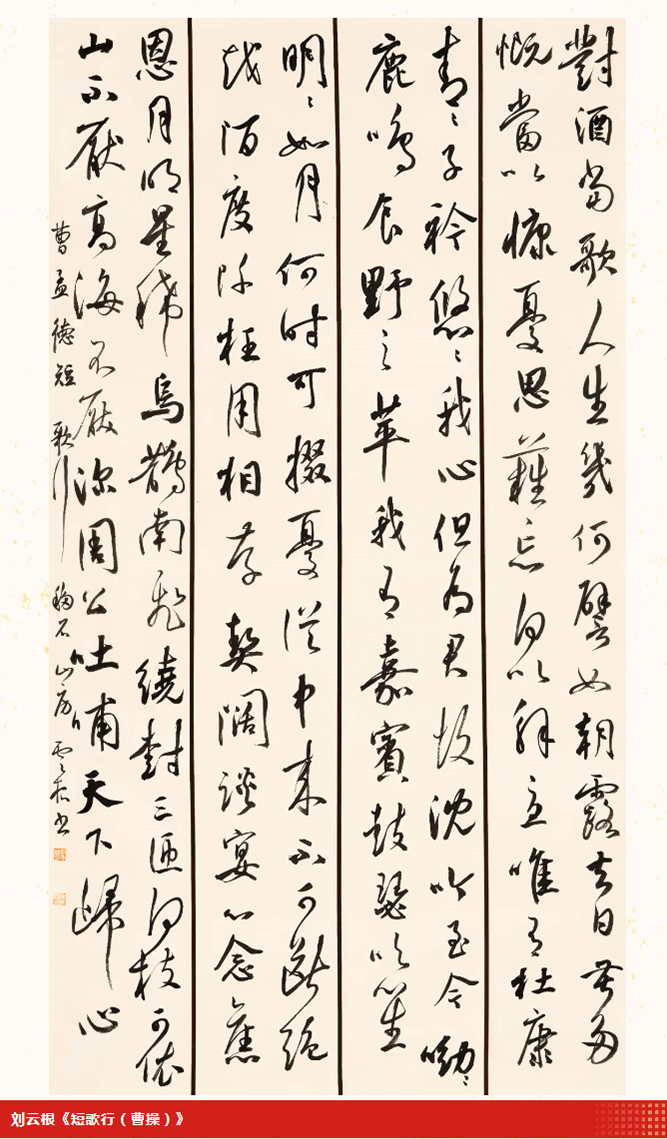 對酒當歌人生幾何譬如朝露去日苦多
慨當以慷憂思難忘何以解憂唯有杜康
青々子衿悠々我心但為君故沈吟至今呦々
鹿鳴食野之苹我有嘉賓鼓瑟吹笙
明々如月何時可掇憂從中来不可斷絕
越陌度阡枉用相存契闊談宴心念舊
恩月明星稀烏鵲南飛繞樹三匝何枝可依
山不厭高海不厭深周公吐哺天下歸心
曹孟德短歌行 石山房雲根書
刘云根《短歌行（曹操）》